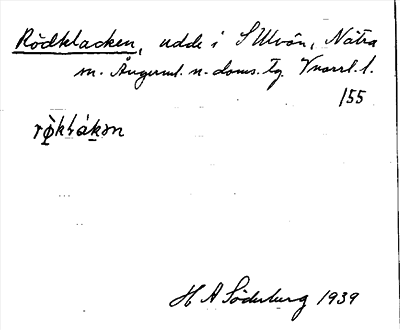 Rödklacken, udde i S Ulvön, Nätra
sn. Ångerml. n. doms. tg. Vnorrl. l.
155
rø̀kɫákən
H A Söderberg 1939